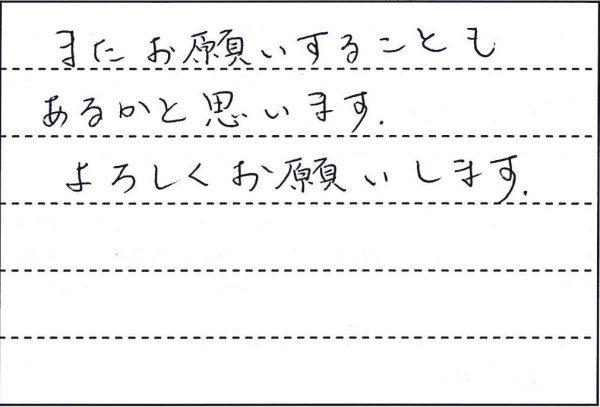 またお願いすることも
あるかと思います.
よろしくお願いします.